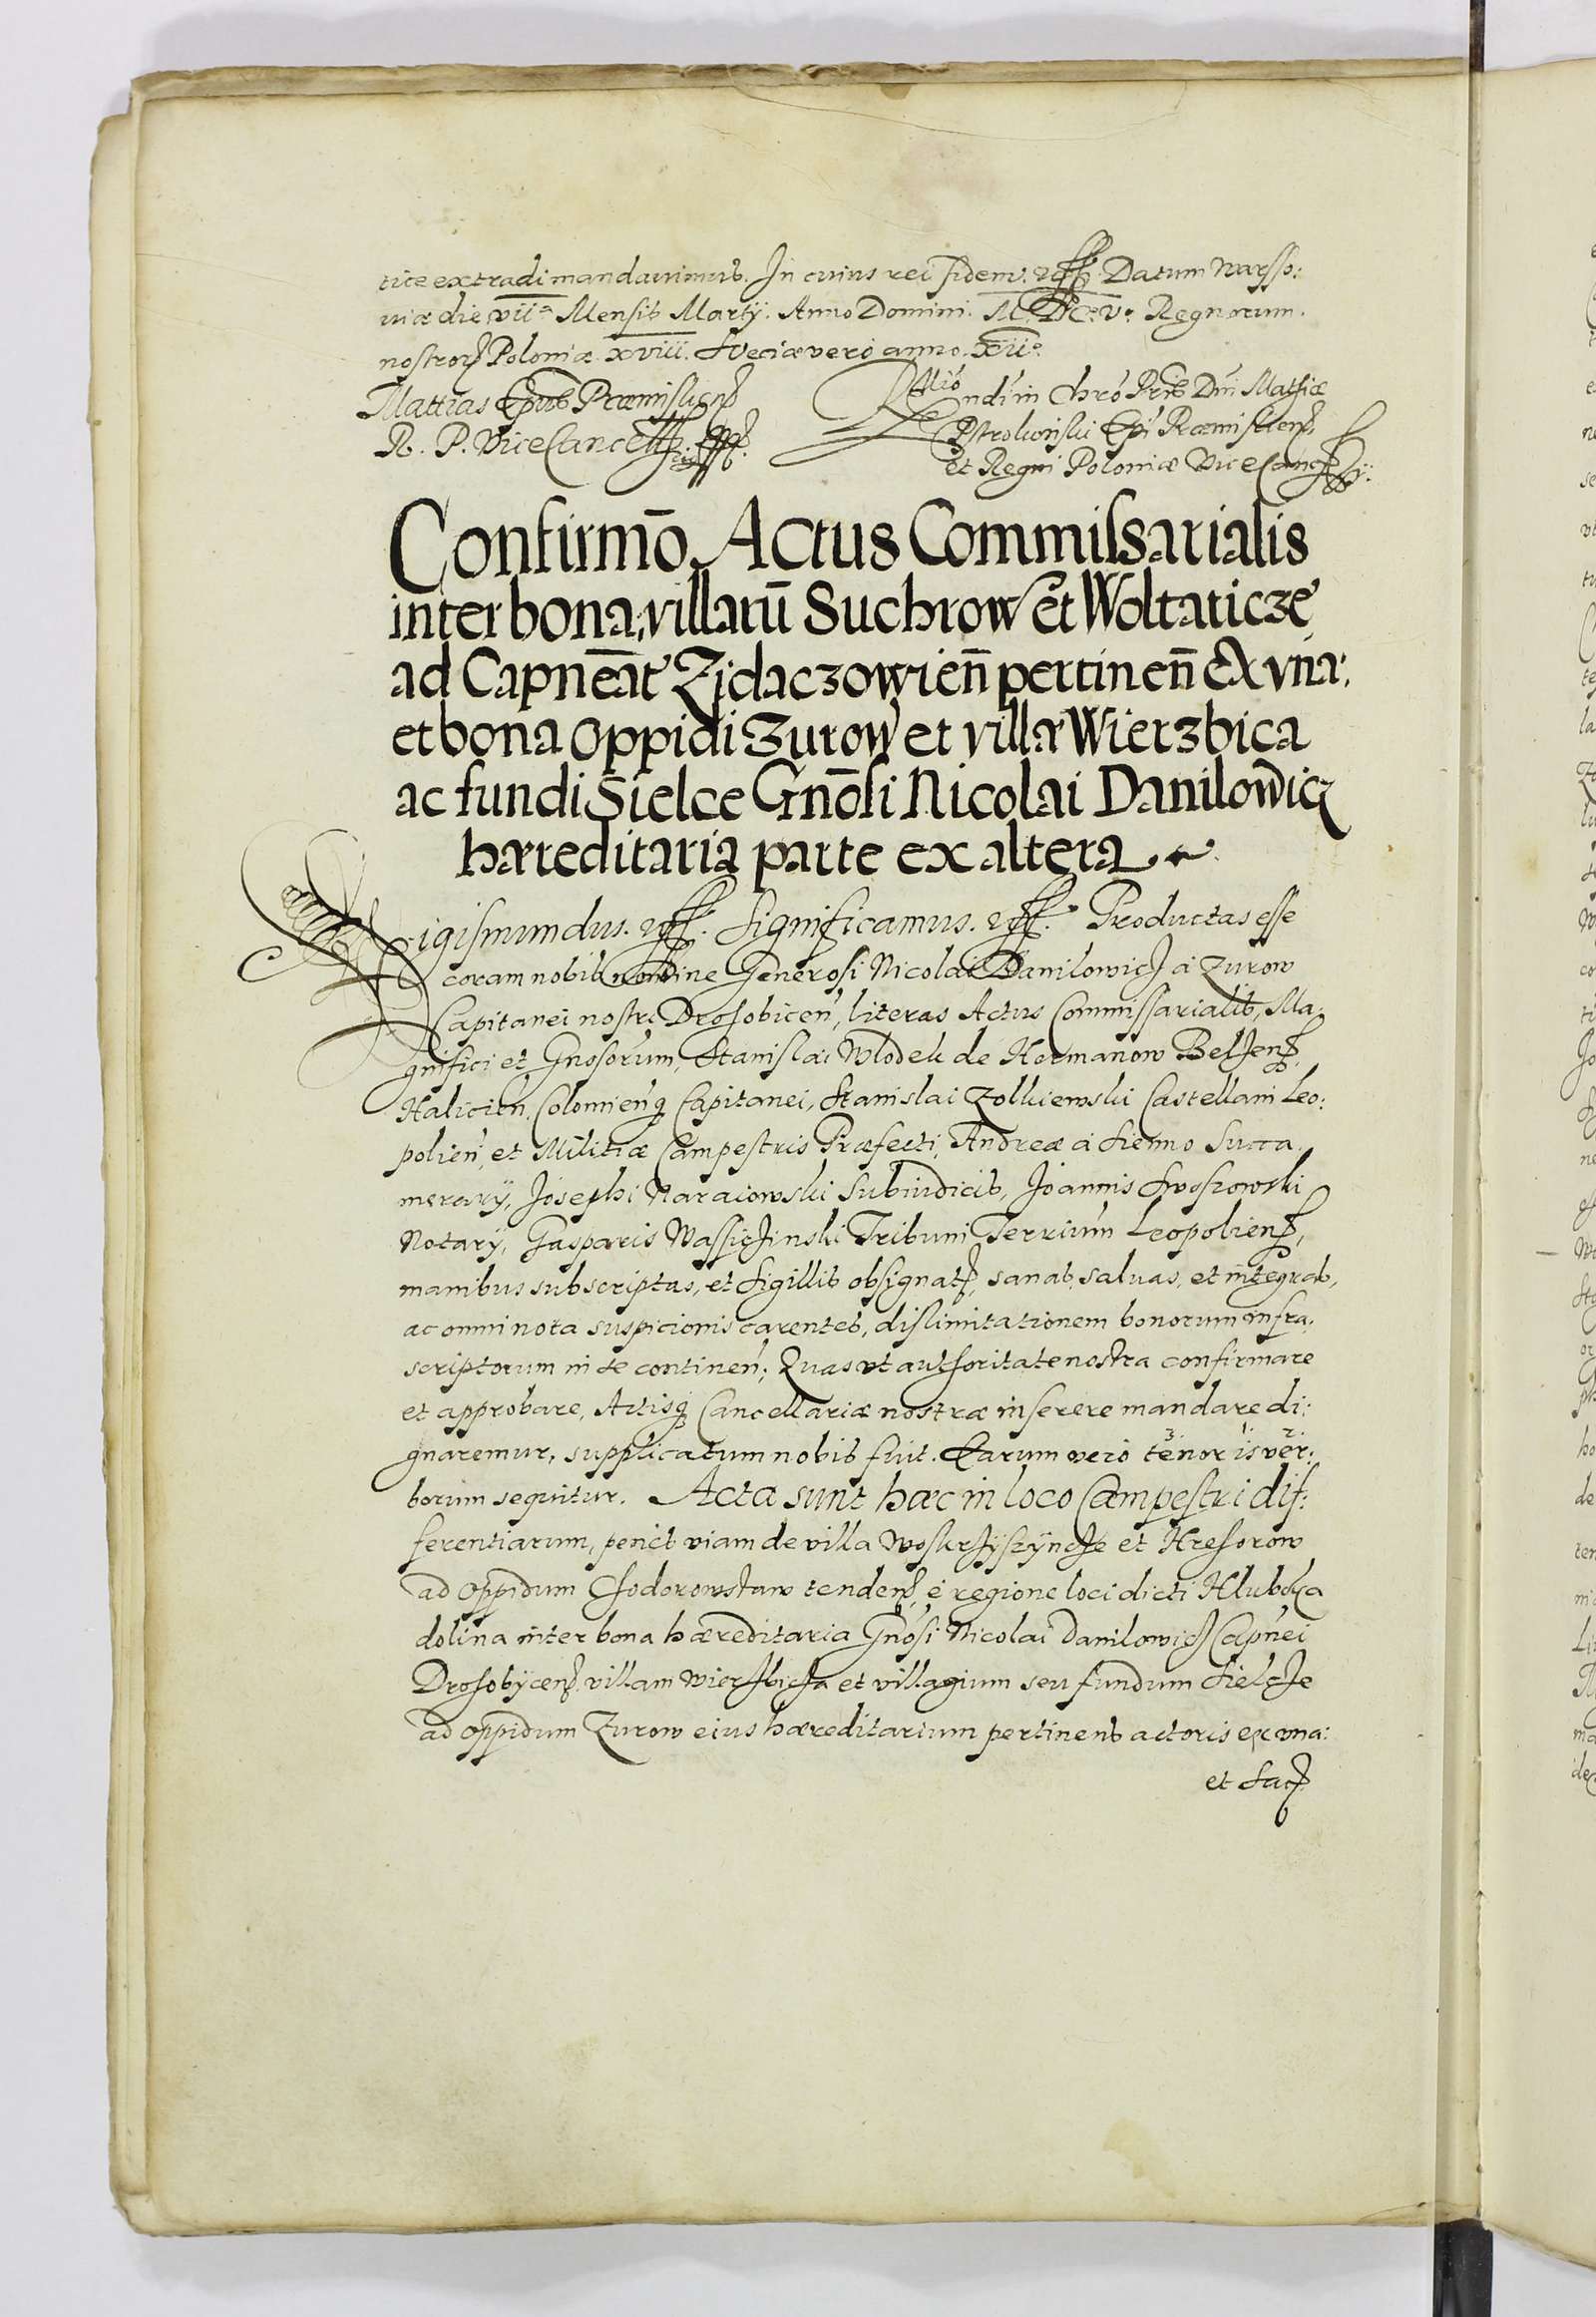 tice extradi mandauimus. In cuius rei fidem. Datum Warsso:
uiæ die viia Mensis Martij. Anno Domini. M. DC. Vo. Regnorum.
nostror Poloniæ xviii. Sueciæ vero anno. xiio.
Mattias Epus Præmislien
R. P. ViceCancell
Rlio ndi in Chro Pris Dni Mathiæ
Pstrokoński Epi Præmislien,
et Regni Poloniæ ViceCanc
Confirmō Actus Commissarialis
inter bona, villarū Suchrow et Woltaticze
ad Capnēat Zidaczowień pertineñ ex vna:
et bona oppidi Zurow et villæ Wierzbica
ac fundi Sielce Gnōsi Nicolai Danilowicz
hæreditaria parte ex altera
Sigismundus. Significamus. Productas esse
coram nobis nomine Generosi Nicolai Danilowicz a Zurow
Capitanei nostri Drohobicen, literas Actus Commissarialis, Ma:
gnifici et Gnosorum, Stanislai Wlodek de Hermanow Belzen,
Halicien, Colomienq Capitanei, Stanislai Zolkiewski Castellani Leo:
polien, et Militiæ Campestris Præfecti, Andreæ a Sienno Succa
merarij, Josephi Naraiowski Subiudicis, Joannis Swoszowski
Notarij, Gasparis Wassiczinski Tribuni Terrium Leopolien,
manibus subscriptas, et Sigillis obsignat, sanas, saluas, et integras,
ac omni nota suspicionis carentes, dislimitationem bonorum infra:
scriptorum in se continen; Quas vt authoritate nostra confirmare
et approbare, Actisq Cancellariæ nostræ inserere mandare di:
gnaremur, supplicatum nobis fuit. Earum vero tenor is ver:
borum sequitur. Acta sunt hæc in loco Campestri dif:
ferentiarum, penes viam de villa Woskrzyszyncze et Hrehorow
ad oppidum Chodorowstaw tenden, e regione loci dicti Hluboka
dolina inter bona hæreditaria Gnosi Nicolai Danilowicz Capnei
Drohobycen, villam Wierzbicza et villagium seu fundum Sielcze
ad oppidum Zurow eius hæreditarium pertinens actoris ex vna:
et Sac